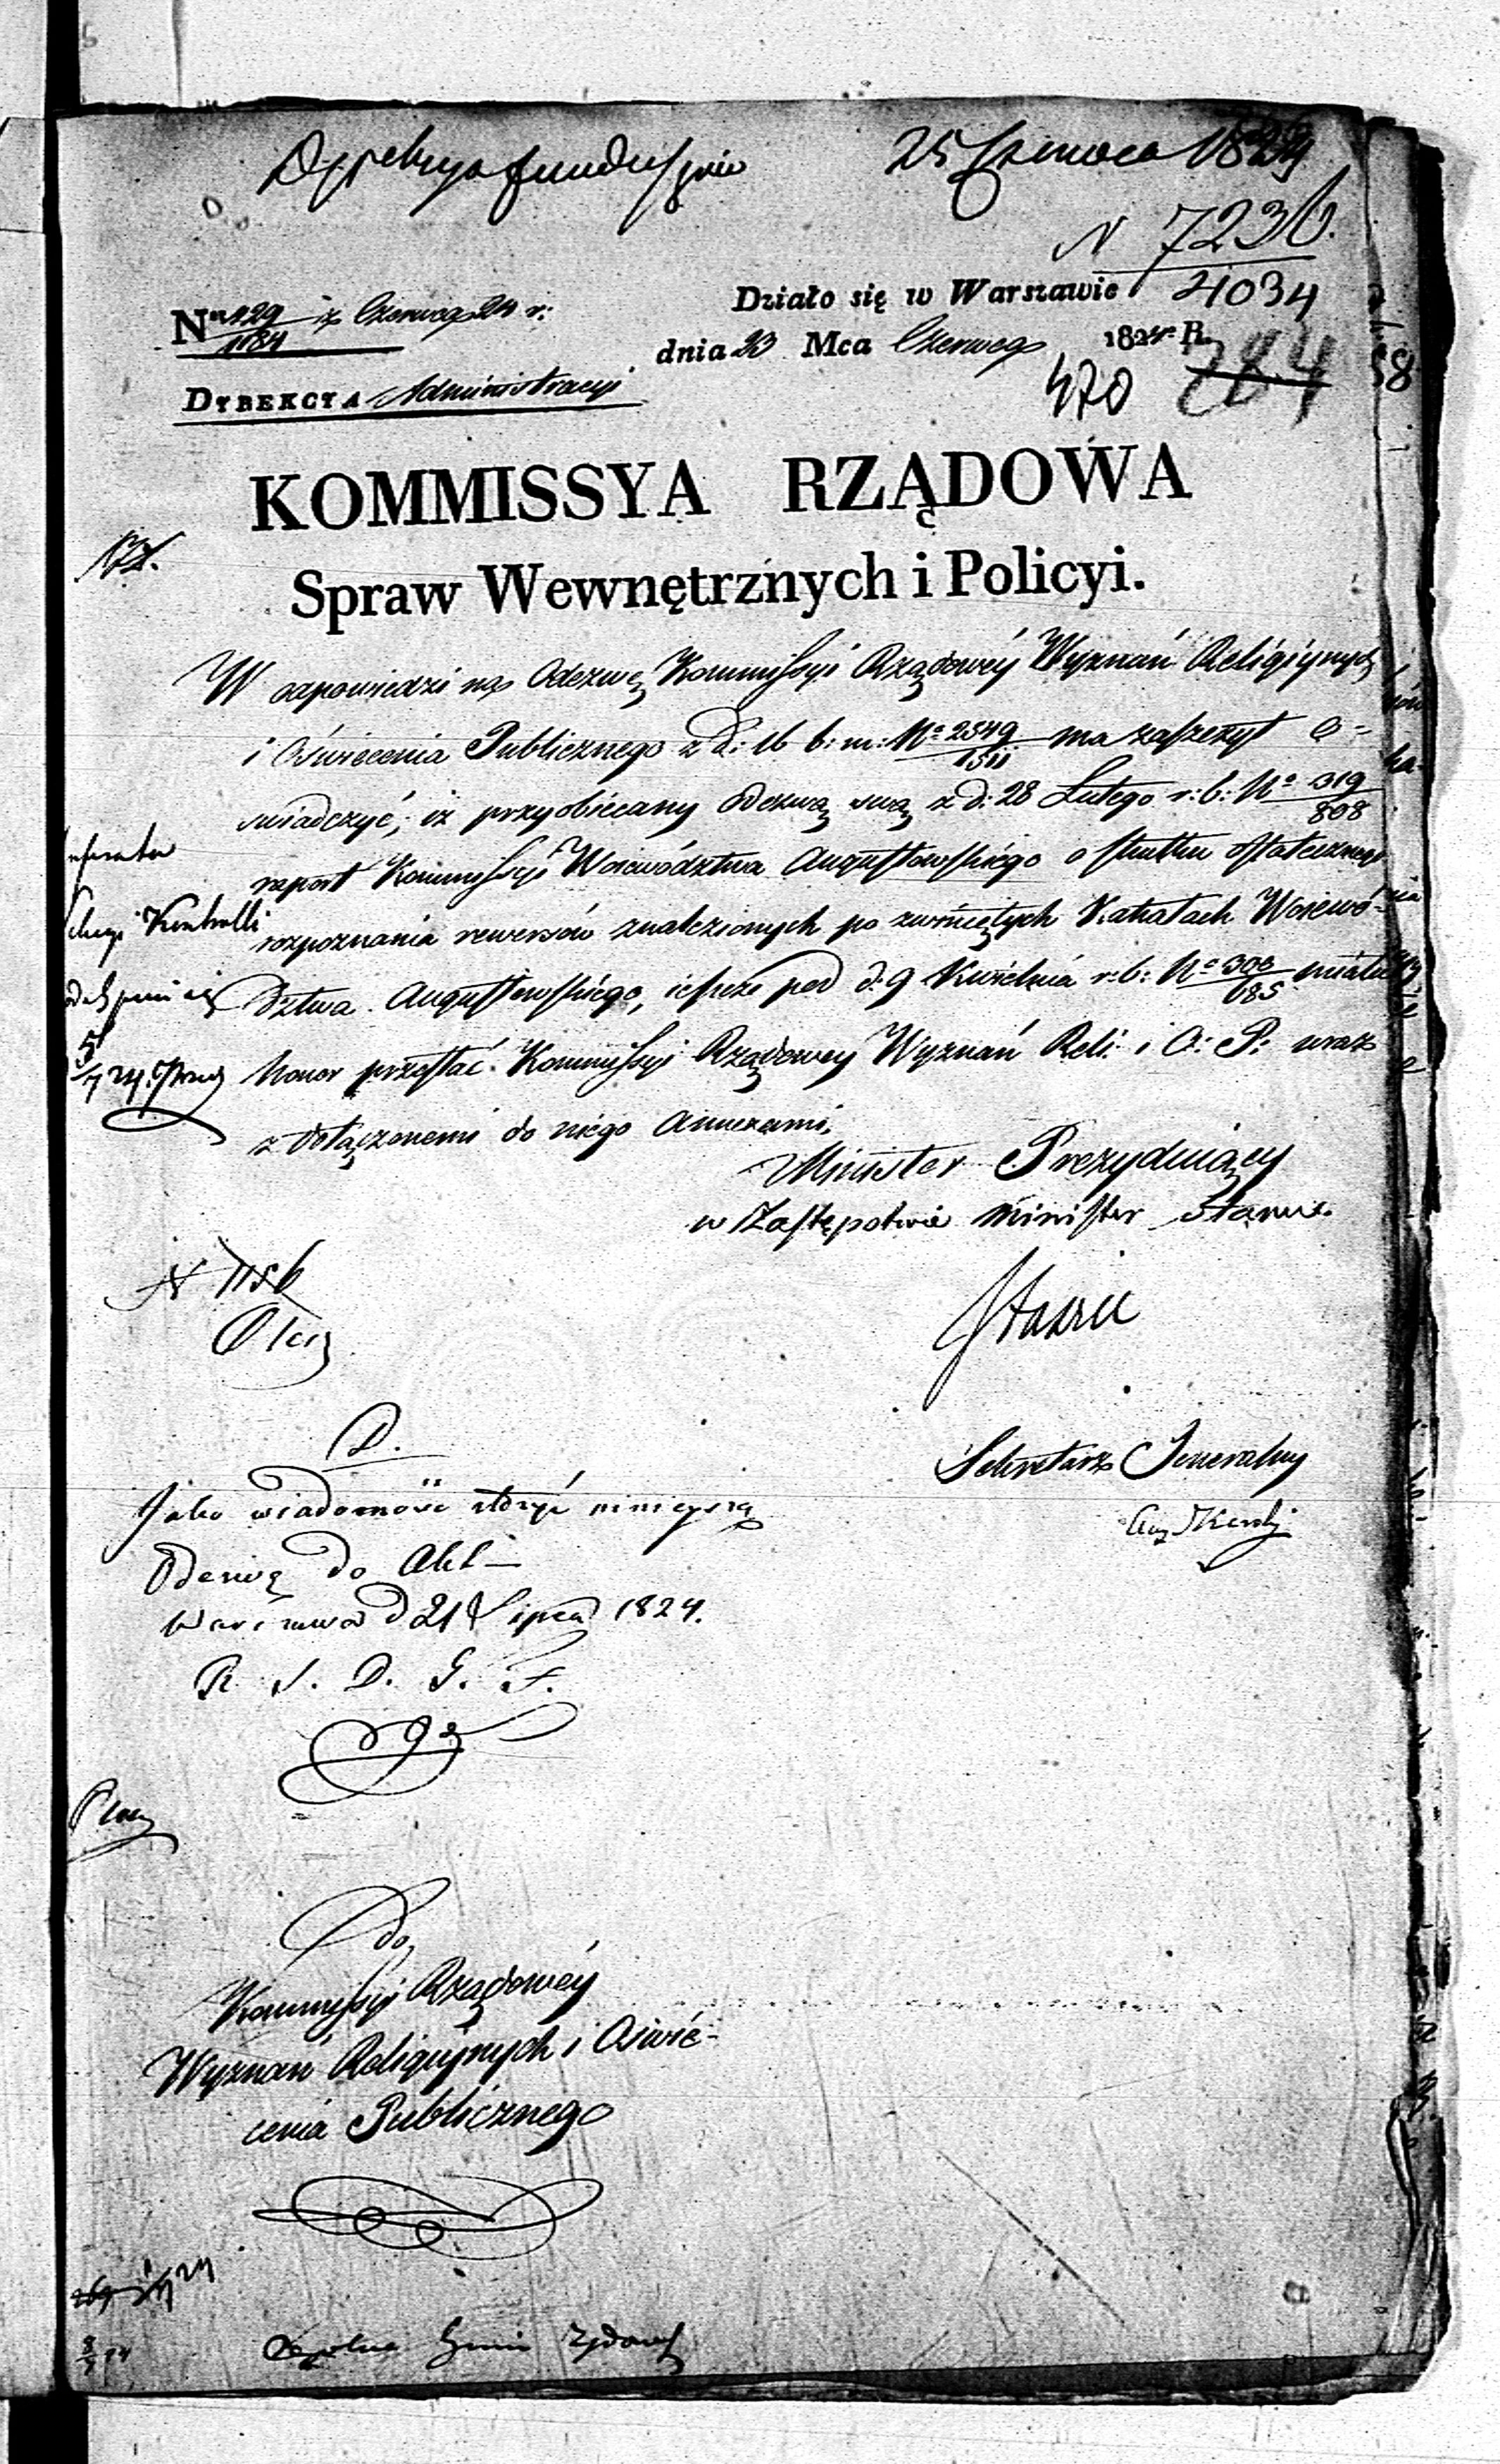 Dyrekcya funduszów 25 Czerwca 1824
N 7236.
4034
Działo się w Warszawie
Nro 129 z Czerwca 24 r:
1184
dnia 23 Mca Czerwca 1824 R.
470 784 58
DYREKCYA Administracyi
KOMMISSYA RZĄDOWA
Spraw Wewnętrznych i Policyi.
W odpowiedzi na Odezwę Kommissyi Rządowéy Wyznań Religiynych
i Oświecenia Publicznego z d: 16 b: m: No 2549/1511 ma zaszczyt o-
świadczyć, iż przyobiecany Odezwą swą z d: 28 Lutego r: b: No 319/808
raport Kommissyi Woiewództwa Augustowskiégo o skutku ostatecznego
rozpoznania rewersów znalezionych po zwiniętych Kahałach Woiewó-
dztwa Augustowskiégo, ieszcze pod d: 9 Kwietnia r: b: No 306/685 miała
honor przesłać Kommissyi Rządowey Wyznań Reli: i O: P: wraz
z dołączonemi do niégo Annexami.
Kontrolli
Minister Prezyduiący
w Zastępstwie Minister Stanu
N 1156
Staszic
D.
Sekretarz Jeneralny
Jako wiadomość złożyć ninieyszą
Odezwę do Akt
Warszawa d 21 Lipca 1824.
R J. D. G. F.
Do
Kommissyi Rządowéy
Wyznań Religiynych i Oświé-
cenia Publicznego